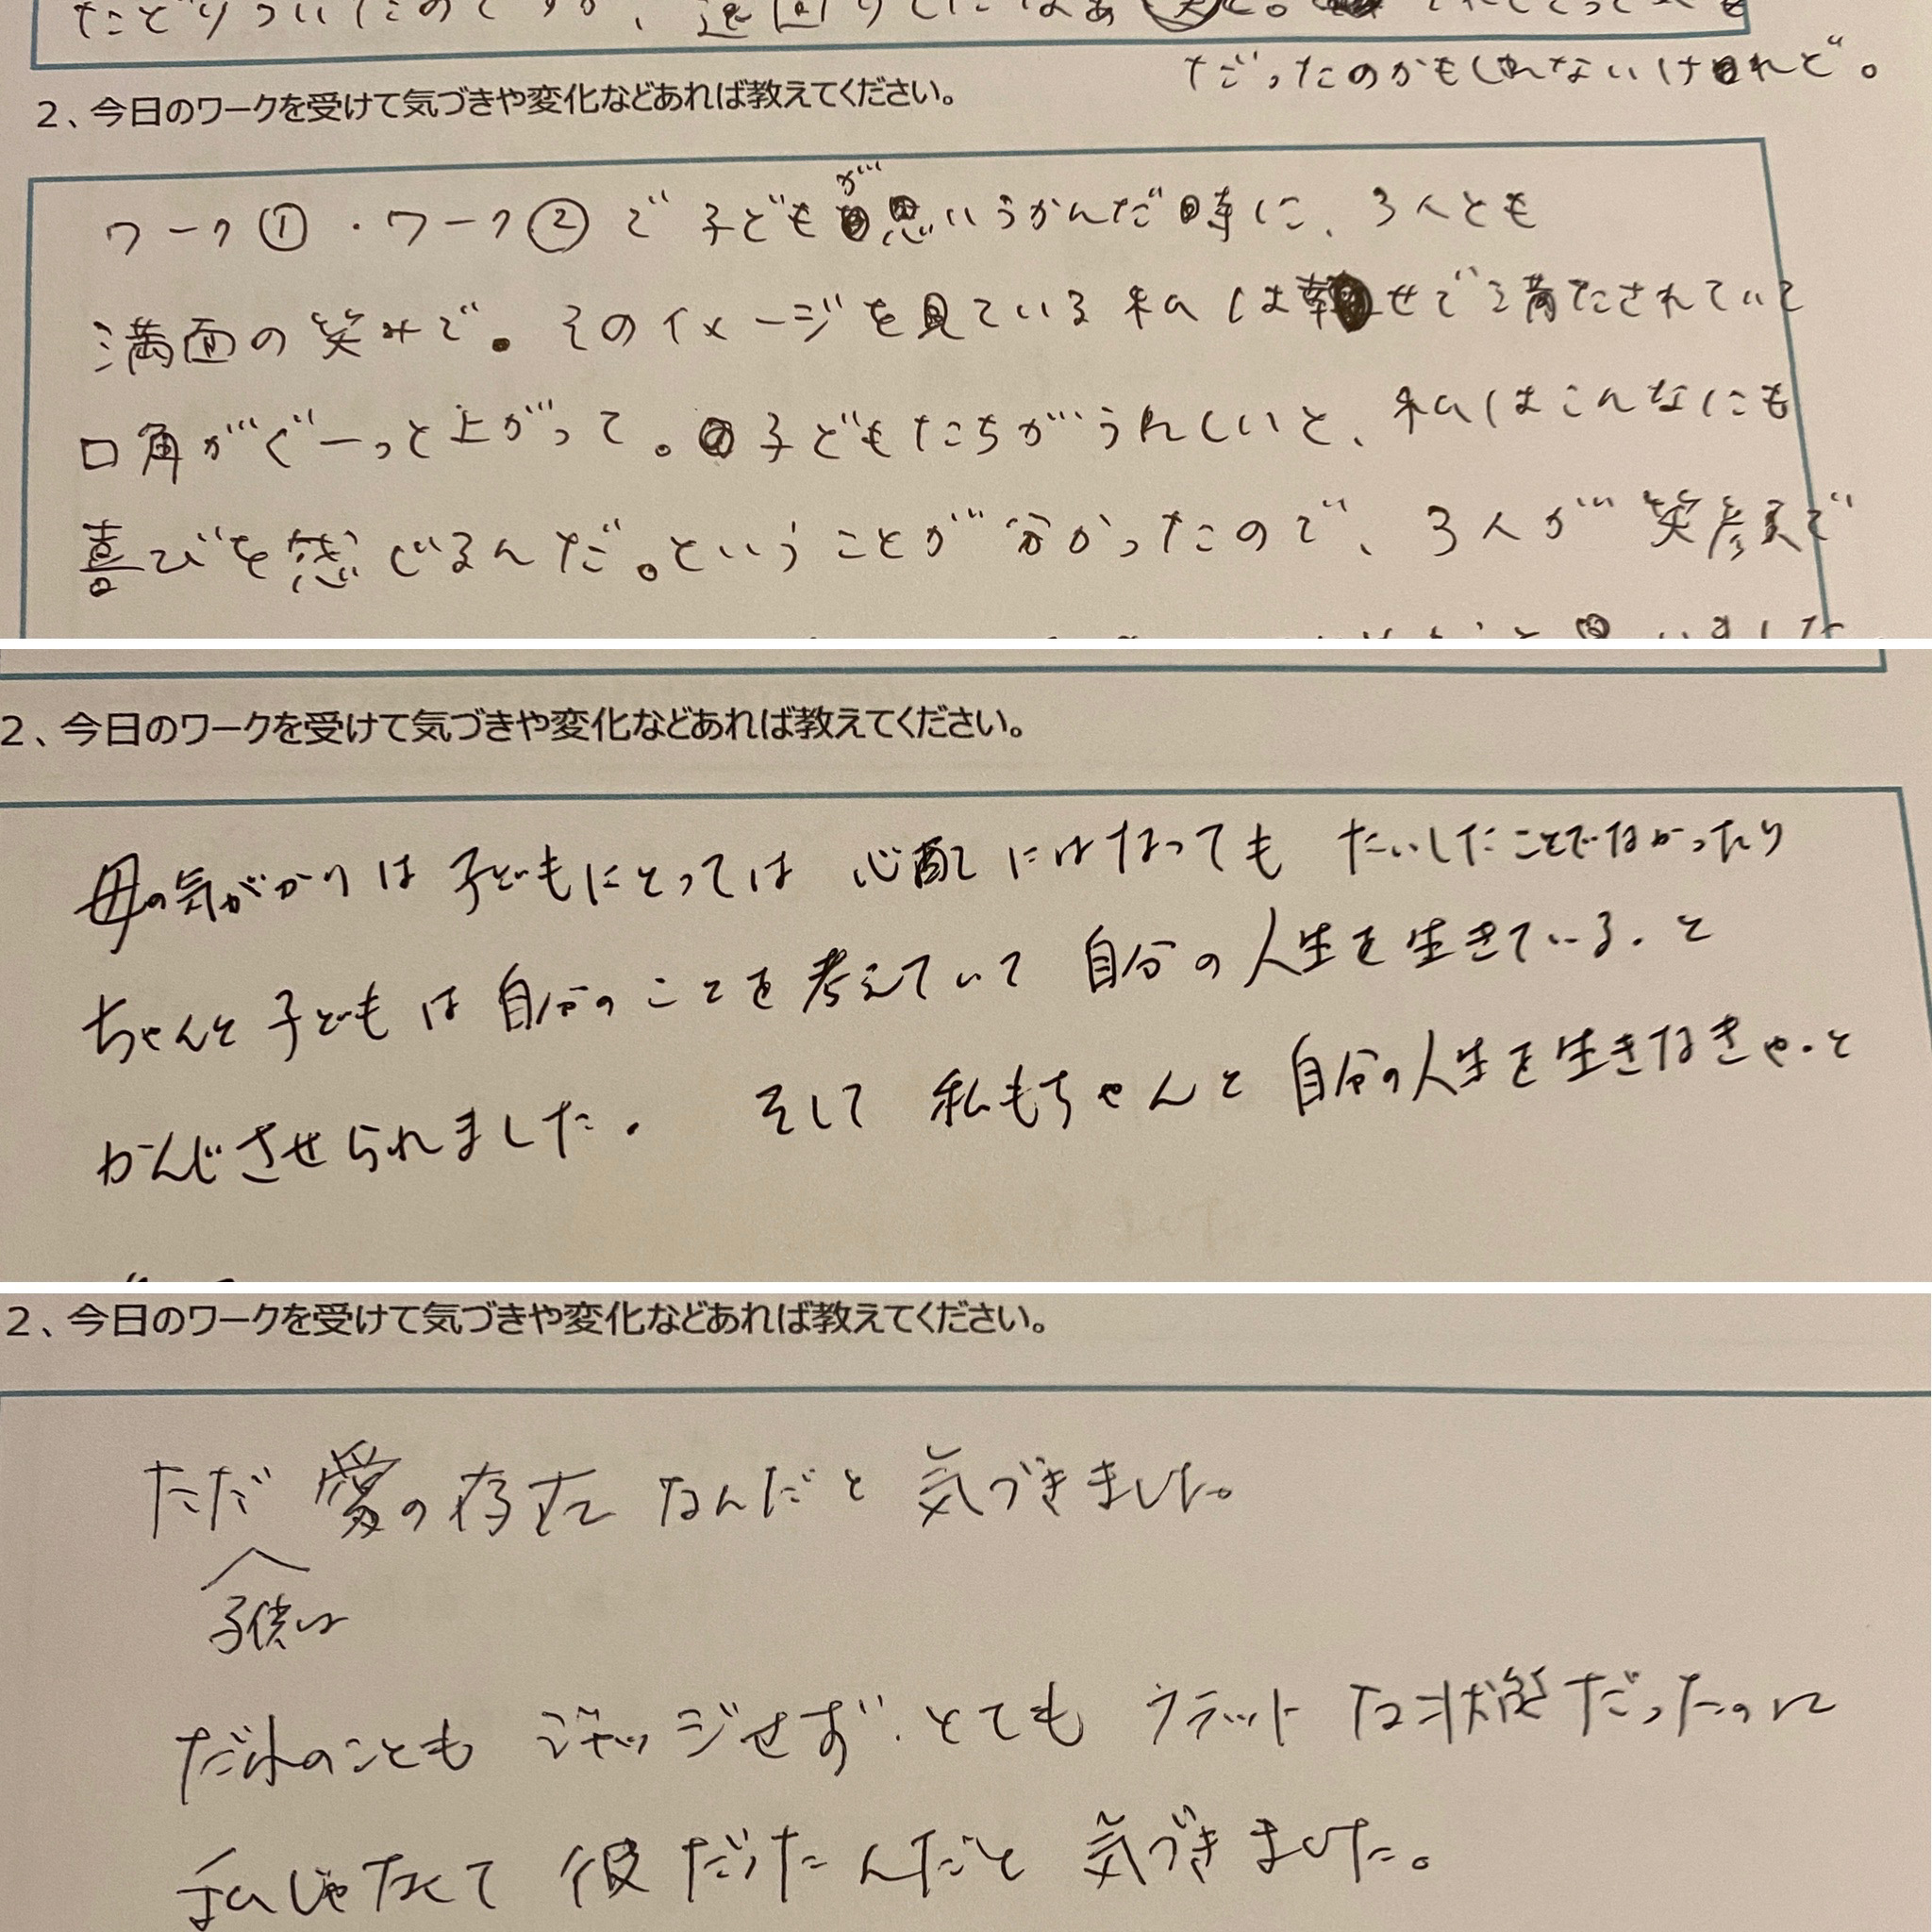 だったのかもしれないけれど。
2、今日のワークを受けて気づきや変化などあれば教えてください。
ワーク①・ワーク②で子どもが思いうかんだ時に、3人とも
満面の笑みで。そのイメージを見ている私は幸せで満たされていて
口角がぐーっと上がって。子どもたちがうれしいと、私はこんなにも
喜びを感じるんだ。ということが分かったので、3人が笑顔で
と思いました
2、今日のワークを受けて気づきや変化などあれば教えてください。
母の気がかりは子どもにとっては心配にはなってもたいしたことでなかったり
ちゃんと子どもは自分のことを考えていて自分の人生を生きている.と
かんじさせられました. そして私もちゃんと自分の人生を生きなきゃ.と
2、今日のワークを受けて気づきや変化などあれば教えてください。
ただ愛の存在なんだと気づきました。
子供は
だれのこともジャッジせず.とてもフラットな状態だったのに
私じゃなくて役だったんだと気づきました。